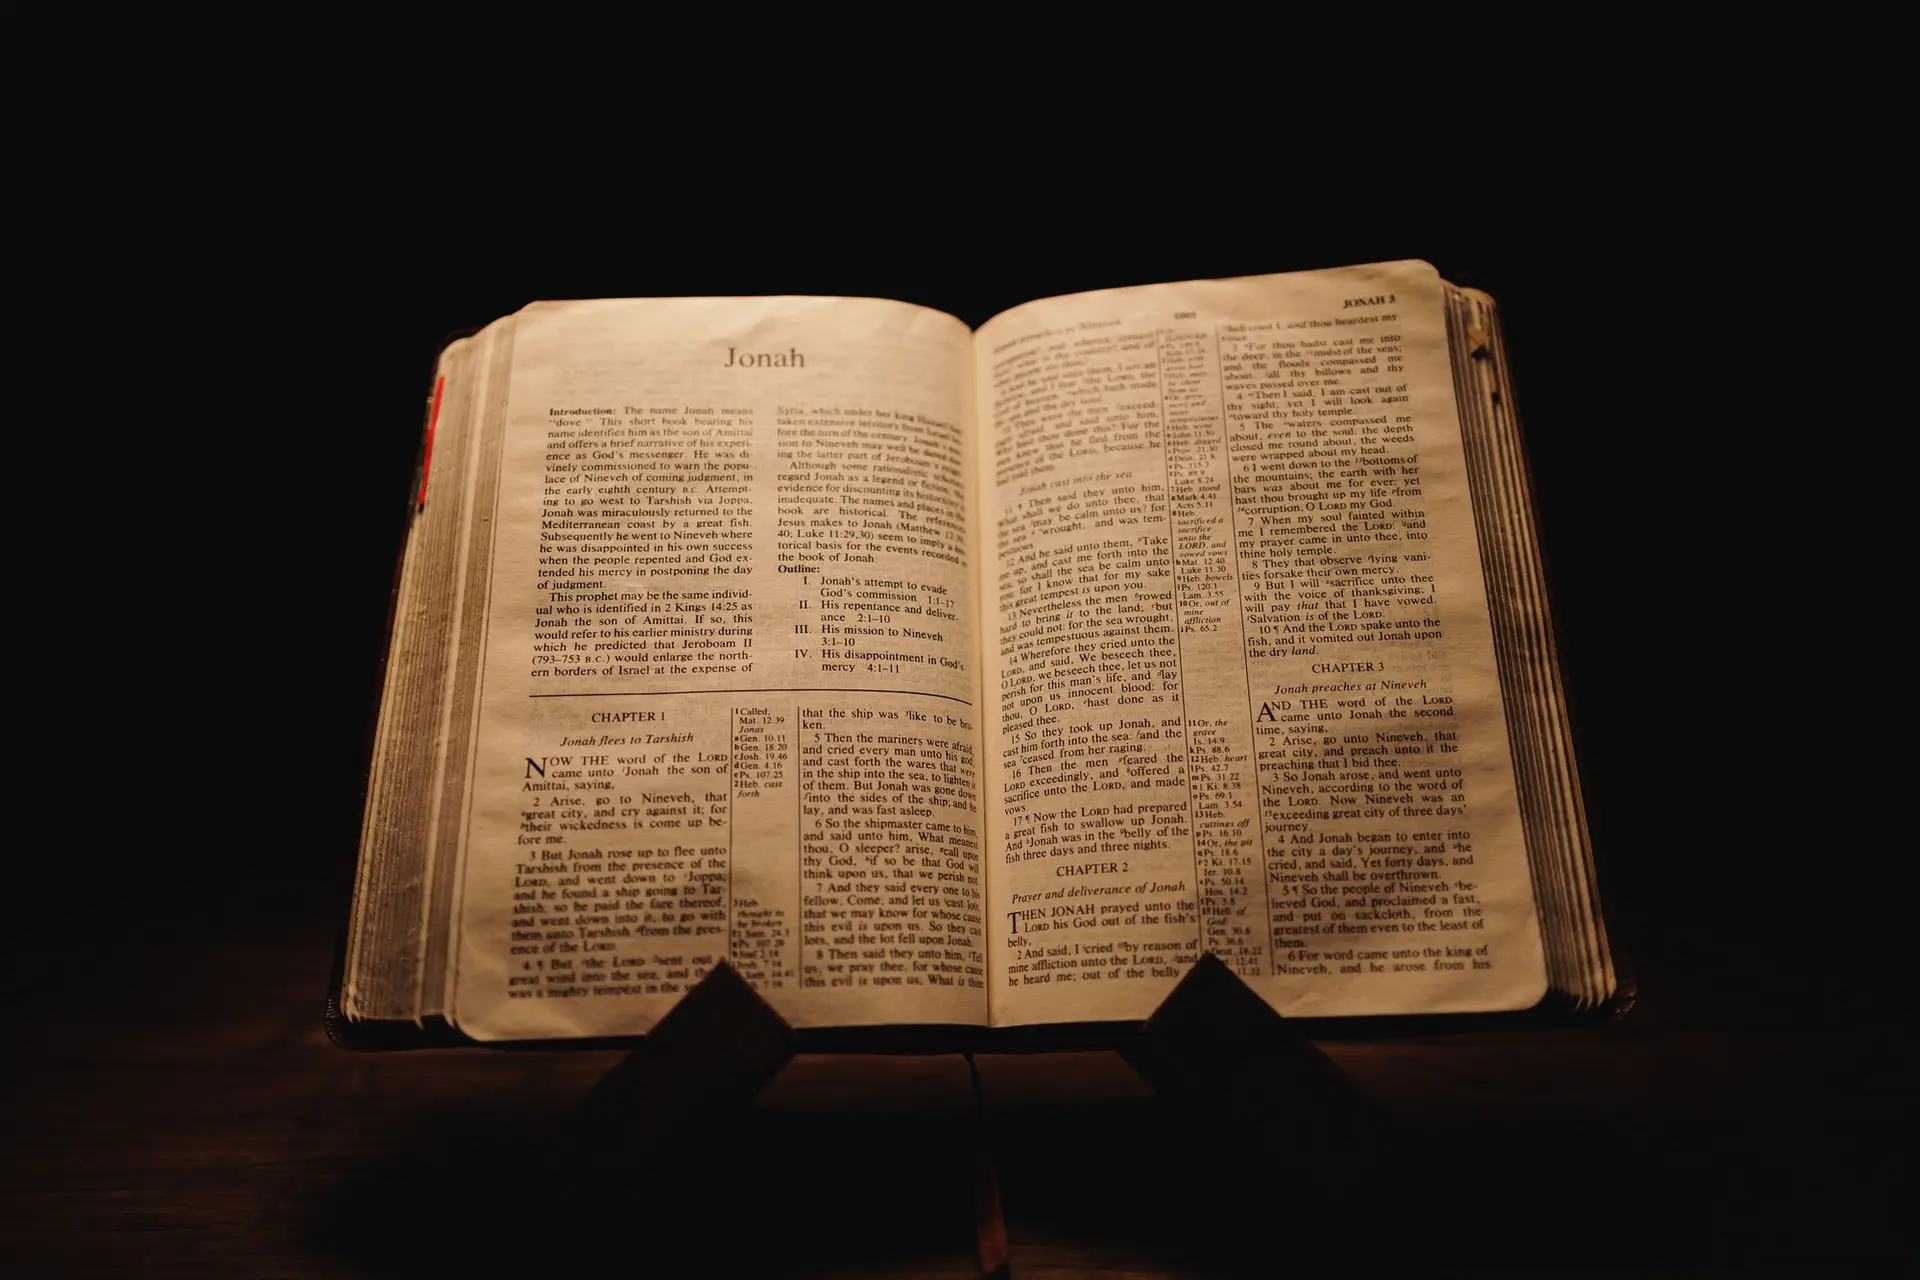 Jonah
Introduction: The name Jonah means
"dove." This short book bearing his
name identifies him as the son of Amittai
and offers a brief narrative of his experi-
ence as God's messenger. He was di-
vinely commissioned to warn the popu-
lace of Nineveh of coming judgment, in
the early eighth century B.C. Attempt-
ing to go west to Tarshish via Joppa,
Jonah was miraculously returned to the
Mediterranean coast by a great fish.
Subsequently he went to Nineveh where
he was disappointed in his own success
when the people repented and God ex-
tended his mercy in postponing the day
of judgment.
This prophet may be the same individ-
ual who is identified in 2 Kings 14:25 as
Jonah the son of Amittai. If so, this
would refer to his earlier ministry during
which he predicted that Jeroboam II
(793–753 B.C.) would enlarge the north-
ern borders of Israel at the expense of
Syria, which under her king Hazael had
taken extensive territory from Israel be-
fore the turn of the century. Jonah's mis-
sion to Nineveh may well be dated dur-
ing the latter part of Jeroboam's reign.
Although some rationalistic scholars
regard Jonah as a legend or fiction, the
evidence for discounting its historicity is
inadequate. The names and places in the
book are historical. The references
Jesus makes to Jonah (Matthew 12:39,
40; Luke 11:29,30) seem to imply a his-
torical basis for the events recorded in
the book of Jonah.
Outline:
I. Jonah's attempt to evade
God's commission 1:1–17
II. His repentance and deliver-
ance 2:1–10
III. His mission to Nineveh
3:1–10
IV. His disappointment in God's
mercy 4:1–11
CHAPTER 1
Jonah flees to Tarshish
NOW THE word of the LORD
came unto ¹Jonah the son of
Amittai, saying,
2 Arise, go to Nineveh, that
ᵃgreat city, and cry against it; for
ᵇtheir wickedness is come up be-
fore me.
3 But Jonah rose up to flee unto
Tarshish from the presence of the
LORD, and went down to ᶜJoppa;
and he found a ship going to Tar-
shish: so he paid the fare thereof,
and went down into it, to go with
them unto Tarshish ᵈfrom the pres-
ence of the LORD.
4 ¶ But ᵉthe LORD ²sent out
great wind into the sea, and
was a mighty tempest in the
1 Called,
Mat. 12.39
Jonas
a Gen. 10.11
b Gen. 18.20
c Josh. 19.46
d Gen. 4.16
e Ps. 107.25
2 Heb. cast
forth
3 Heb.
thought to
be broken
that the ship was ³like to be bro-
ken.
5 Then the mariners were afraid,
and cried every man unto his god,
and cast forth the wares that were
in the ship into the sea, to lighten it
of them. But Jonah was gone down
ᶠinto the sides of the ship; and he
lay, and was fast asleep.
6 So the shipmaster came to him,
and said unto him, What meanest
thou, O sleeper? arise, ᵍcall upon
thy God, ʰif so be that God will
think upon us, that we perish not.
7 And they said every one to his
fellow, Come, and let us ⁱcast lots,
that we may know for whose cause
this evil is upon us. So they cast
lots, and the lot fell upon Jonah.
8 Then said they unto him, Tell
us, we pray thee, for whose cause
this evil is upon us; What is thine
JONAH 3
he fled from the
presence of the LORD, because he
had told them.
Jonah cast into the sea
11 ¶ Then said they unto him,
What shall we do unto thee, that
the sea may be calm unto us? for
the sea wrought, and was tem-
pestuous.
12 And he said unto them, Take
me up, and cast me forth into the
sea; so shall the sea be calm unto
you: for I know that for my sake
this great tempest is upon you.
13 Nevertheless the men rowed
hard to bring it to the land; but
they could not: for the sea wrought,
and was tempestuous against them.
14 Wherefore they cried unto the
LORD, and said, We beseech thee,
O LORD, we beseech thee, let us not
perish for this man's life, and lay
not upon us innocent blood: for
thou, O LORD, hast done as it
pleased thee.
15 So they took up Jonah, and
cast him forth into the sea: and the
sea ceased from her raging.
16 Then the men feared the
LORD exceedingly, and offered a
sacrifice unto the LORD, and made
vows.
17 ¶ Now the LORD had prepared
a great fish to swallow up Jonah.
And Jonah was in the belly of the
fish three days and three nights.
CHAPTER 2
Prayer and deliverance of Jonah
THEN JONAH prayed unto the
LORD his God out of the fish's
belly,
2 And said, I cried by reason of
mine affliction unto the LORD, and
he heard me; out of the belly
Luke 8.24
7 Heb. stood
k Mark 4.41
Acts 5.11
8 Heb.
sacrificed a
sacrifice
unto the
LORD, and
vowed vows
Mat. 12.40
Luke 11.30
9 Heb. bowels
Ps. 120.1
Lam. 3.55
10 Or, out of
mine
affliction
Ps. 65.2
11 Or, the
grave
Is. 14.9
k Ps. 88.6
12 Heb. heart
l Ps. 42.7
m Ps. 31.22
n 1 Ki. 8.38
o Ps. 69.1
Lam. 3.54
13 Heb.
cuttings off
p Ps. 16.10
14 Or, the pit
q Ps. 18.6
r 2 Ki. 17.15
Jer. 10.8
s Ps. 50.14
Hos. 14.2
t Ps. 3.8
15 Heb. of
God
Gen. 30.8
Ps. 36.6
cried I, and thou heardest my
voice.
3 For thou hadst cast me into
the deep, in the midst of the seas;
and the floods compassed me
about: all thy billows and thy
waves passed over me.
4 Then I said, I am cast out of
thy sight; yet I will look again
toward thy holy temple.
5 The waters compassed me
about, even to the soul: the depth
closed me round about, the weeds
were wrapped about my head.
6 I went down to the bottoms of
the mountains; the earth with her
bars was about me for ever: yet
hast thou brought up my life from
corruption, O LORD my God.
7 When my soul fainted within
me I remembered the LORD: and
my prayer came in unto thee, into
thine holy temple.
8 They that observe lying vani-
ties forsake their own mercy.
9 But I will sacrifice unto thee
with the voice of thanksgiving; I
will pay that that I have vowed.
Salvation is of the LORD.
10 ¶ And the LORD spake unto the
fish, and it vomited out Jonah upon
the dry land.
CHAPTER 3
Jonah preaches at Nineveh
AND THE word of the LORD
came unto Jonah the second
time, saying,
2 Arise, go unto Nineveh, that
great city, and preach unto it the
preaching that I bid thee.
3 So Jonah arose, and went unto
Nineveh, according to the word of
the LORD. Now Nineveh was an
¹⁵exceeding great city of three days'
journey.
4 And Jonah began to enter into
the city a day's journey, and he
cried, and said, Yet forty days, and
Nineveh shall be overthrown.
5 ¶ So the people of Nineveh be-
lieved God, and proclaimed a fast,
and put on sackcloth, from the
greatest of them even to the least of
them.
6 For word came unto the king of
Nineveh, and he arose from his